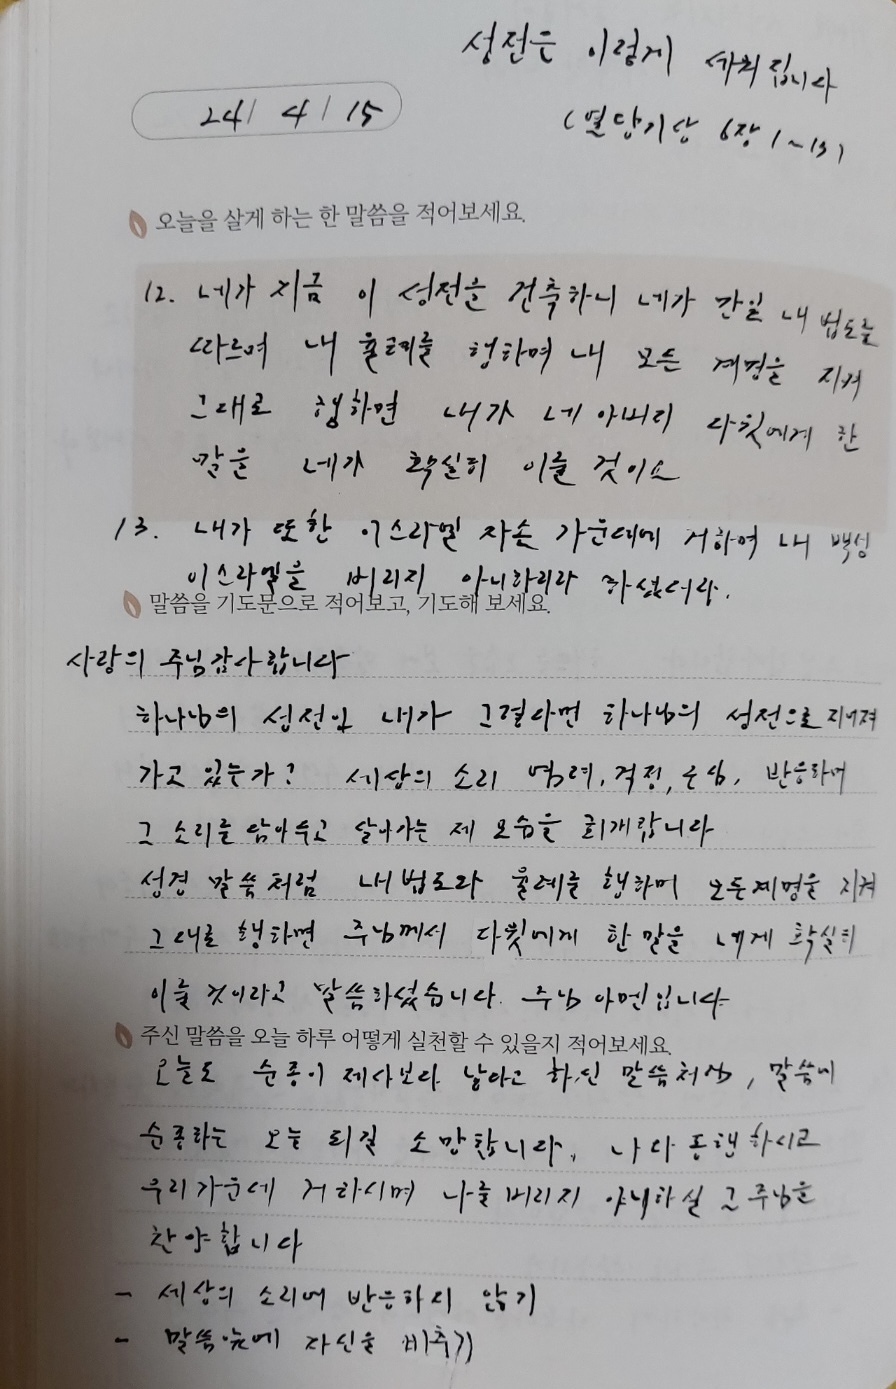 성전은 이렇게 세워집니다
24/ 4/ 15
(열왕기상 6장 1~13)
오늘을 살게 하는 한 말씀을 적어보세요.
12. 네가 지금 이 성전을 건축하니 네가 만일 내 법도를
따르며 내 율례를 행하며 내 모든 계명을 지켜
그대로 행하면 내가 네 아버지 다윗에게 한
말을 네게 확실히 이룰 것이요
13. 내가 또한 이스라엘 자손 가운데에 거하여 내 백성
이스라엘을 버리지 아니하리라 하셨더라.
말씀을 기도문으로 적어보고, 기도해 보세요.
사랑의 주님감사합니다
하나님의 성전인 내가 그렇다면 하나님의 성전으로 지어져
가고 있는가? 세상의 소리 염려, 걱정, 근심, 반응하며
그 소리를 담아두고 살아가는 제 모습을 회개합니다
성경 말씀처럼 내 법도와 율례를 행하며 모든계명을 지켜
그대로 행하면 주님께서 다윗에게 한 말을 네게 확실히
이룰 것이라고 말씀하셨습니다. 주님 아멘입니다
주신 말씀을 오늘 하루 어떻게 실천할 수 있을지 적어보세요.
오늘도 순종이 제사보다 낫다고 하신 말씀처럼, 말씀에
순종하는 오늘 되길 소망합니다. 나와 동행하시고
우리가운데 거하시며 나를 버리지 아니하실 그 주님을
찬양합니다
- 세상의 소리에 반응하지 않기
- 말씀눈에 자신을 비추기